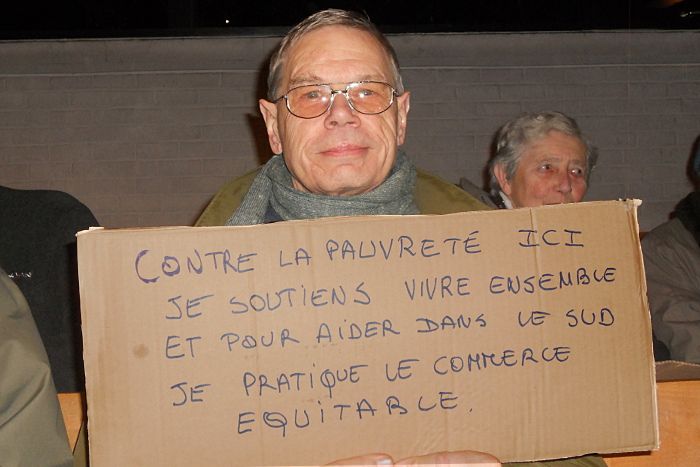 CONTRE LA PAUVRETÉ ICI
JE SOUTIENS VIVRE ENSEMBLE
ET POUR AIDER DANS LE SUD
JE PRATIQUE LE COMMERCE
EQUITABLE.